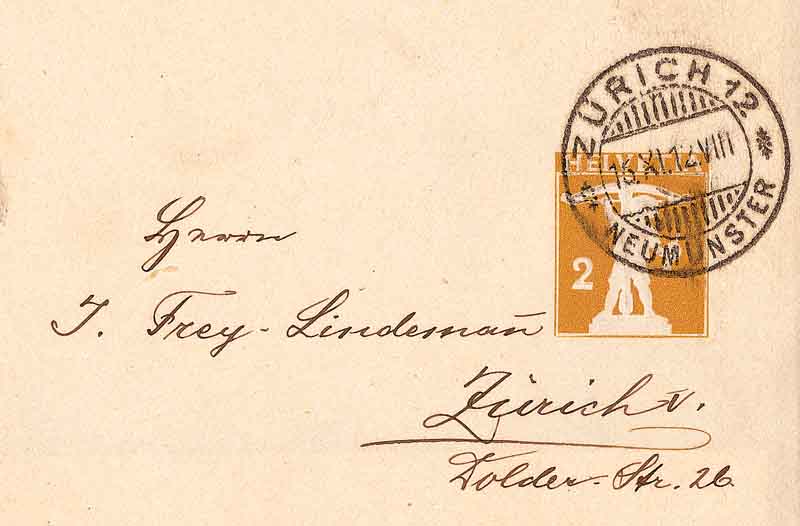 ZÜRICH 12.
15.XI.12.VIII
NEUMÜNSTER
HELVETIA
2
Herrn
J. Frey-Lindeman̄
Zürich-V.
Dolder-Str. 26.